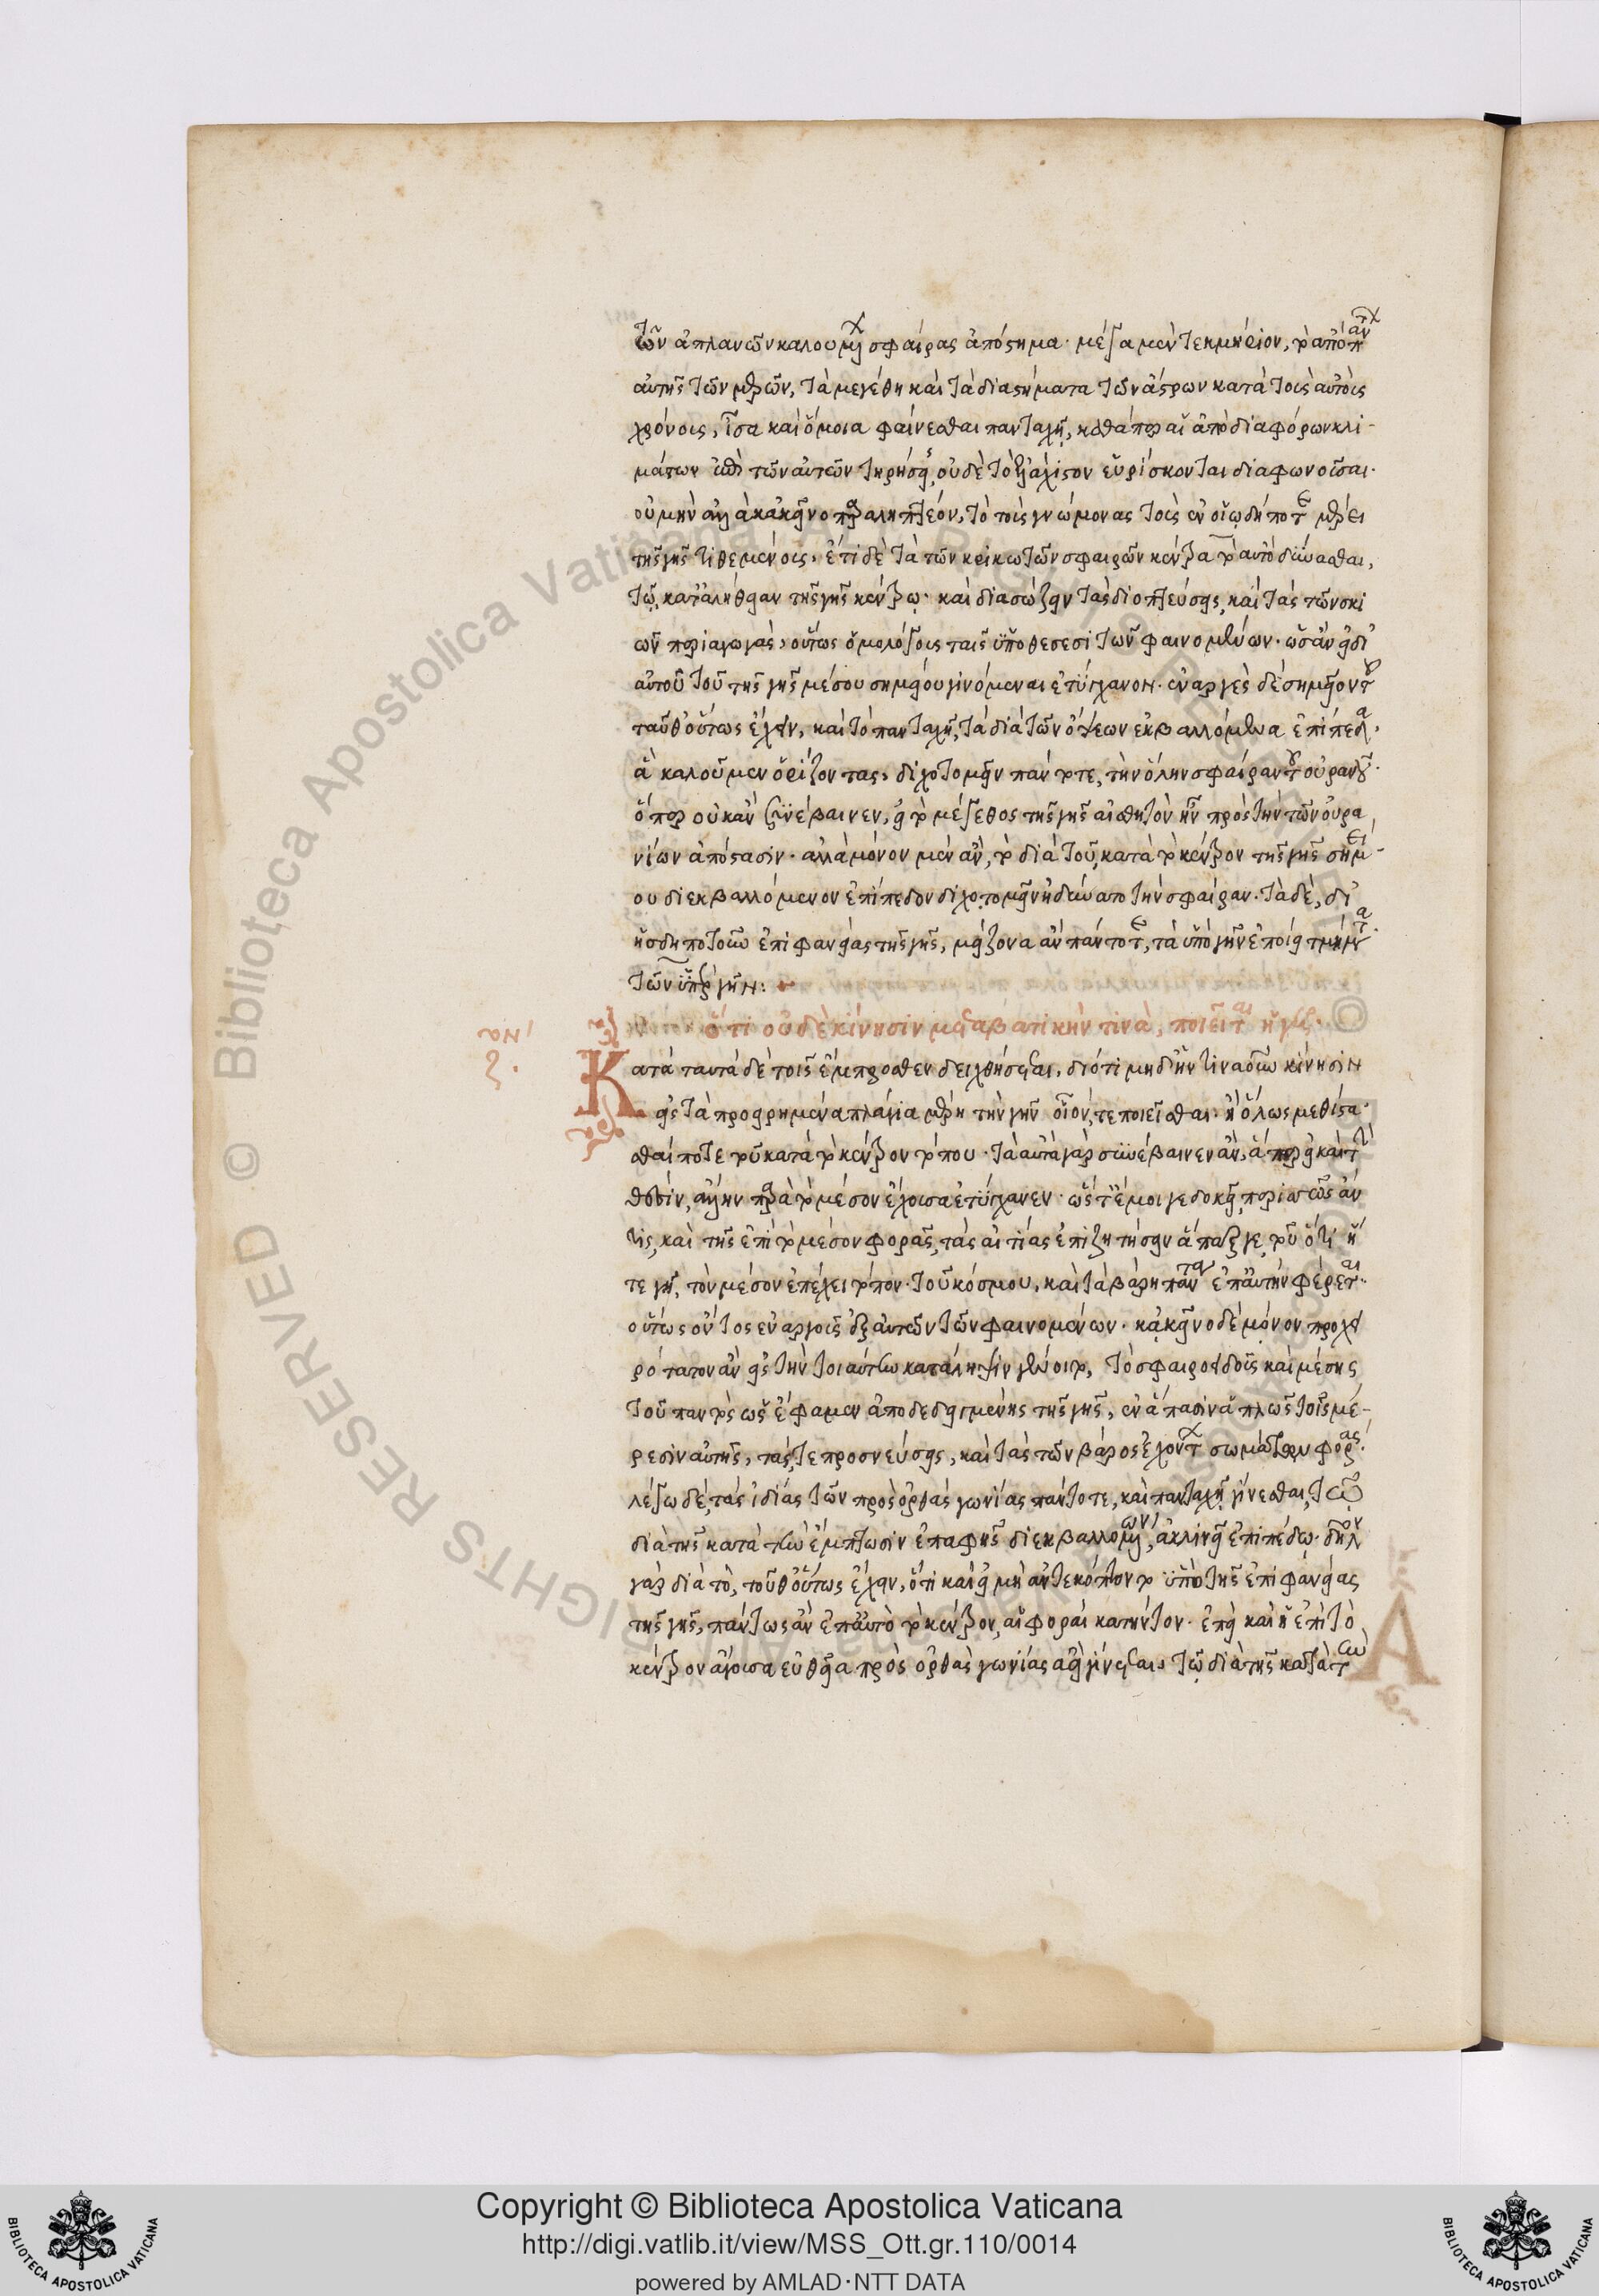 τῶν ἀπλανῶν καλουμένων σφαίρας ἀπόστημα· μέγα μὲν τεκμήριον, τὸ ἀπὸ πάντων
αὐτῆς τῶν μερῶν, τὰ μεγέθη καὶ τὰ διαστήματα τῶν ἄστρων κατὰ τοὺς αὐτοὺς
χρόνους, ἴσα καὶ ὅμοια φαίνεσθαι πανταχῇ, καθάπερ αἱ ἀπὸ διαφόρων κλι-
μάτων ἐπὶ τῶν αὐτῶν τηρήσεις, οὐδὲ τὸ ἐλάχιστον εὑρίσκονται διαφωνοῦσαι.
οὐ μὴν ἀλλὰ κἀκεῖνο παραληπτέον, τὸ τοὺς γνώμονας τοὺς ἐν οἵῳ δήποτε μέρει
τῆς γῆς τιθεμένους, ἔτι δὲ τὰ τῶν κρικωτῶν σφαιρῶν κέντρα τὸ αὐτὸ δύνασθαι,
τῷ κατ' ἀλήθειαν τῆς γῆς κέντρῳ· καὶ διασώζειν τὰς διοπτεύσεις, καὶ τὰς τῶν σκι
ῶν περιαγωγὰς, οὕτως ὁμολόγους ταῖς ὑποθέσεσι τῶν φαινομένων· ὡς ἂν εἰ δι'
αὐτοῦ τοῦ τῆς γῆς μέσου σημείου γινόμεναι ἐτύγχανον· ἐναργὲς δὲ σημεῖον τοῦ
ταῦθ' οὕτως ἔχειν, καὶ τὸ πανταχῇ, τὰ διὰ τῶν ὄψεων ἐκβαλλόμενα ἐπίπεδα·
ἃ καλοῦμεν ὁρίζοντας, διχοτομεῖν πάντοτε, τὴν ὅλην σφαῖραν τοῦ οὐρανοῦ·
ὅπερ οὐκ ἂν συνέβαινεν, εἰ τὸ μέγεθος τῆς γῆς αἰσθητὸν ἦν πρὸς τὴν τῶν οὐρα
νίων ἀπόστασιν· ἀλλὰ μόνον μὲν ἂν, τὸ διὰ τοῦ, κατὰ τὸ κέντρον τῆς γῆς σημεί-
ου διεκβαλλόμενον ἐπίπεδον διχοτομεῖν ἠδύνατο τὴν σφαῖραν· τὰ δὲ, δι'
ἧσδηποτοῦν ἐπιφανείας τῆς γῆς, μείζονα ἂν πάντοτε, τὰ ὑπὸ γῆν ἐποίει τμήματα·
τῶν ὑπὲρ γῆν:
ὅτι οὐδὲ κίνησιν μεταβατικήν τινα, ποιεῖται ἡ γῆ·
Κατὰ ταυτὰ δὲ τοῖς ἔμπροσθεν δειχθήσεται, διότι μηδ' ἥντιναοῦν κίνησιν
εἰς τὰ προειρημένα πλάγια μέρη τὴν γῆν οἷόν τε ποιεῖσθαι· ἢ ὅλως μεθίστα-
σθαί ποτε τοῦ κατὰ τὸ κέντρον τόπου· τὰ αὐτὰ γὰρ συνέβαινεν ἂν, ἅπερ εἰ καὶ τὴν
θέσιν, ἄλλην παρὰ τὸ μέσον ἔχουσα ἐτύγχανεν· ὥστ' ἔμοιγε δοκεῖ, περισσῶς ἄν
τις, καὶ τῆς ἐπὶ τὸ μέσον φορᾶς, τὰς αἰτίας ἐπιζητήσειν ἅπαξ γε, τοῦ ὅτι ἥ
τε γῆ, τὸν μέσον ἐπέχει τόπον· τοῦ κόσμου, καὶ τὰ βάρη πάντα ἐπ' αὐτὴν φέρεται·
οὕτως ὄντος ἐναργοῦς ἐξ αὐτῶν τῶν φαινομένων· κἀκεῖνο δὲ μόνον προχει
ρότατον ἂν εἰς τὴν τοιαύτην κατάληψιν γένοιτο, τὸ σφαιροειδοῦς καὶ μέσης
τοῦ παντὸς ὡς ἔφαμεν ἀποδεδειγμένης τῆς γῆς, ἐν ἅπασιν ἁπλῶς τοῖς μέ-
ρεσιν αὐτῆς, τάς τε προσνεύσεις, καὶ τὰς τῶν βάρος ἐχόντων σωμάτων φοράς·
λέγω δὲ, τὰς ἰδίας τῶν πρὸς ὀρθὰς γωνίας πάντοτε, καὶ πανταχῇ γίνεσθαι, τῷ
διὰ τῆς κατὰ τὴν ἔμπτωσιν ἐπαφῆς διεκβαλλομένῳ, ἀκλινεῖ ἐπιπέδῳ· δῆλον
γὰρ διὰ τὸ, τοῦθ' οὕτως ἔχειν, ὅτι καὶ εἰ μὴ ἀντεκόπτοντο ὑπὸ τῆς ἐπιφανείας
τῆς γῆς, πάντως ἂν ἐπ' αὐτὸ τὸ κέντρον, αἱ φοραὶ κατήντον· ἐπεὶ καὶ ἡ ἐπὶ τὸ
κέντρον ἄγουσα εὐθεῖα πρὸς ὀρθὰς γωνίας ἀεὶ γίνεται, τῷ διὰ τῆς κατὰ τὴν
Copyright © Biblioteca Apostolica Vaticana
http://digi.vatlib.it/view/MSS_Ott.gr.110/0014
powered by AMLAD·NTT DATA